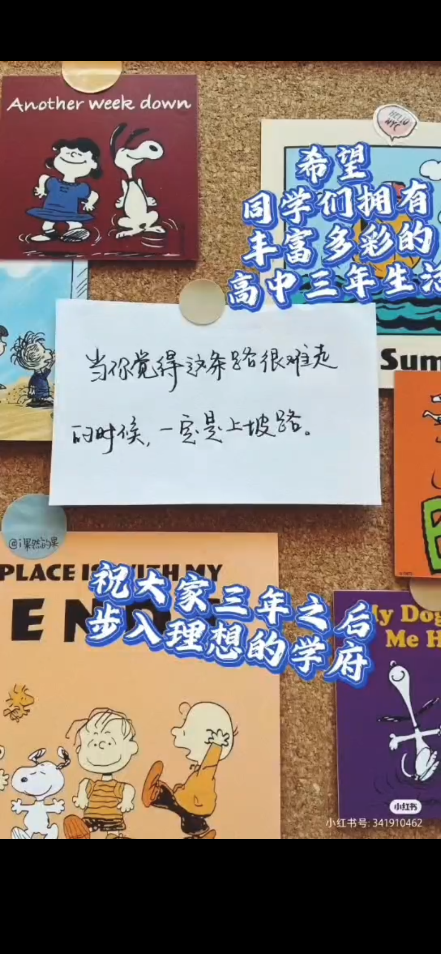 Another week down
希望
同学们拥有
丰富多彩的
高中三年生活
Sum
当你觉得这条路很难走
的时候，一定是上坡路。
@i果然的果
PLACE IS WITH MY
祝大家三年之后
步入理想的学府
My Dog
Me H
小红书
小红书号: 341910462